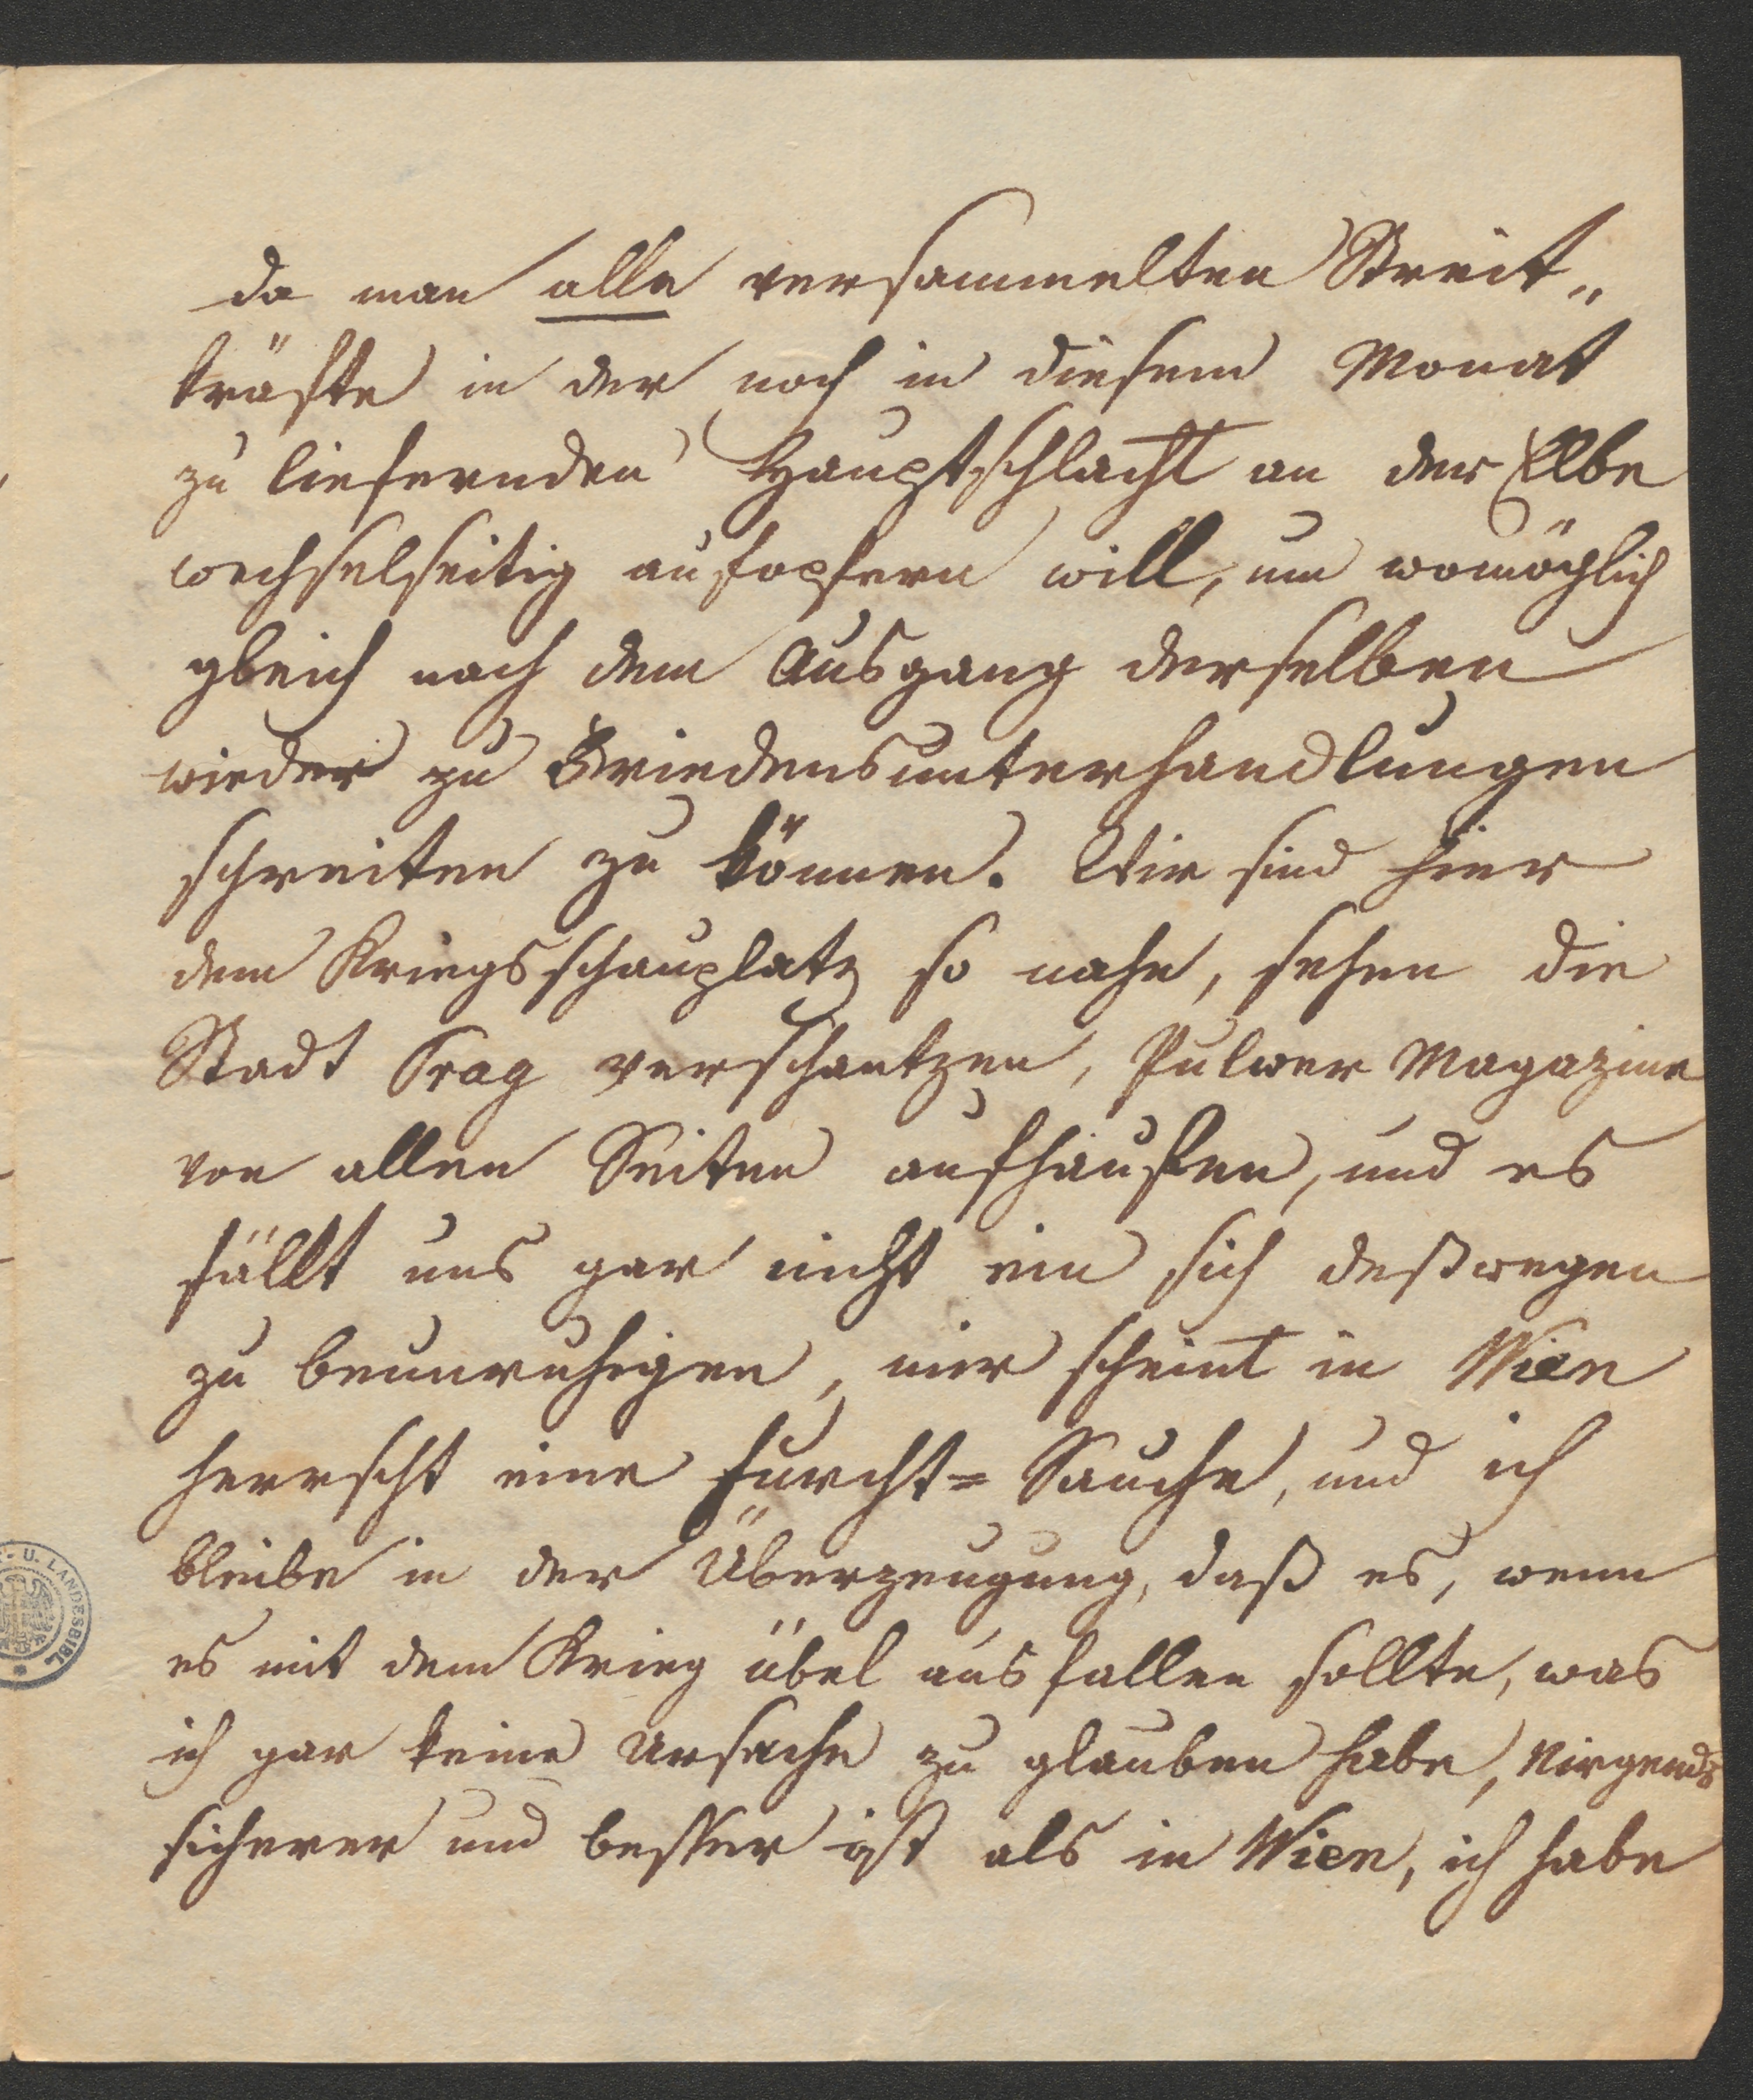 da man alle versammelten Streit„
kräfte in der noch in diesem Monat
zu liefernden Hauptschlacht an der Elbe
wechselseitig aufopfern will, um womöglich
gleich nach dem Ausgang derselben
wieder zu Friedensunterhandlungen
schreiten zu können. Wir sind hier
dem Kriegsschauplatz so nahe, sehen die
Stadt Prag verschantzen, Pulver Magazine
von allen Seiten aufhäufen, und es
fällt uns gar nicht ein sich deßwegen
zu beunruhigen, mir scheint in Wien
herrscht eine Furcht= Sauche, und ich
bleibe in der Überzeugung, daß es, wenn
es mit dem Krieg übel ausfallen sollte, was
ich gar keine Ursache zu glauben habe, nirgends
sicherer und besser ist als in Wien, ich habe
U. LANDESBIBL